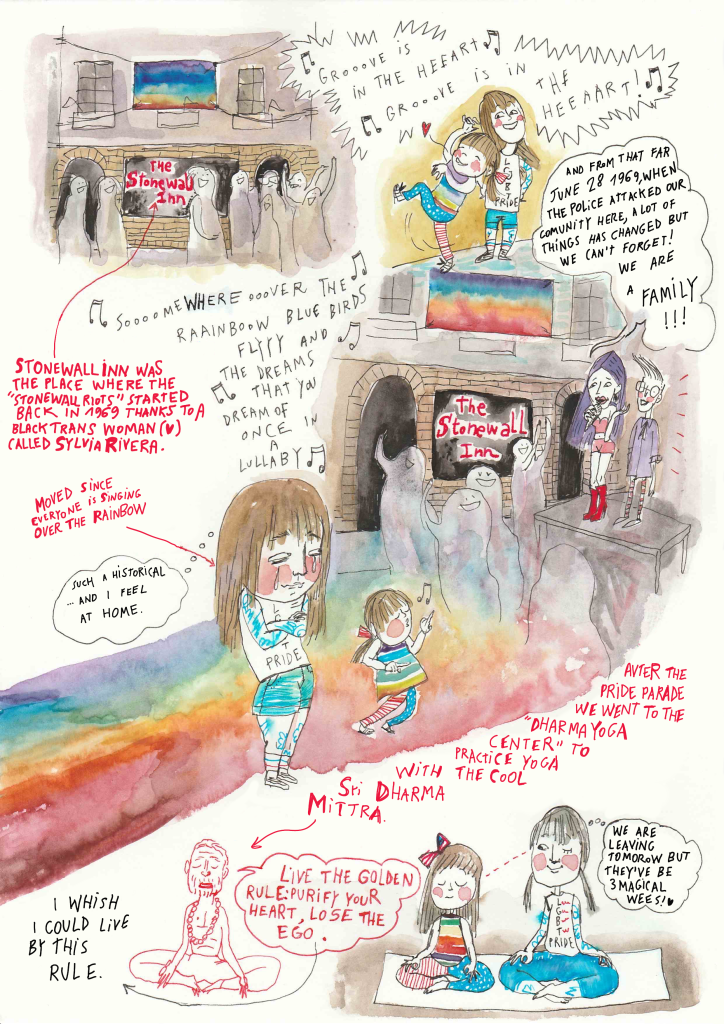 GROOOVE IS
IN THE HEEART
GROOOVE IS IN THE
HEEAART!
The
Stonewall
Inn
L
G
B
T
PRIDE
AND FROM THAT FAR
JUNE 28 1969, WHEN
THE POLICE ATTACKED OUR
COMUNITY HERE, A LOT OF
THINGS HAS CHANGED BUT
WE CAN'T FORGET!
WE ARE
A FAMILY
!!!
SOOOOMEWHERE OOOVER THE
RAAINBOOW BLUE BIRDS
FLYYY AND
THE DREAMS
THAT YOU
DREAM OF
ONCE IN
A
LULLABY
STONEWALL INN WAS
THE PLACE WHERE THE
"STONEWALL RIOTS" STARTED
BACK IN 1969 THANKS TO A
BLACK TRANS WOMAN (♥)
CALLED SYLVIA RIVERA.
The
Stonewall
Inn
MOVED SINCE
EVERYONE IS SINGING
OVER THE RAINBOW
SUCH A HISTORICAL
... AND I FEEL
AT HOME.
T
PRIDE
AVTER THE
PRIDE PARADE
WE WENT TO THE
"DHARMA YOGA
CENTER" TO
PRACTICE YOGA
WITH THE COOL
SRI DHARMA
MITTRA.
LIVE THE GOLDEN
RULE: PURIFY YOUR
HEART, LOSE THE
EGO.
I WHISH
I COULD LIVE
BY THIS
RULE.
WE ARE
LEAVING
TOMOROW BUT
THEY'VE BE
3 MAGICAL
WEES!♥
L
G
B
T
PRIDE